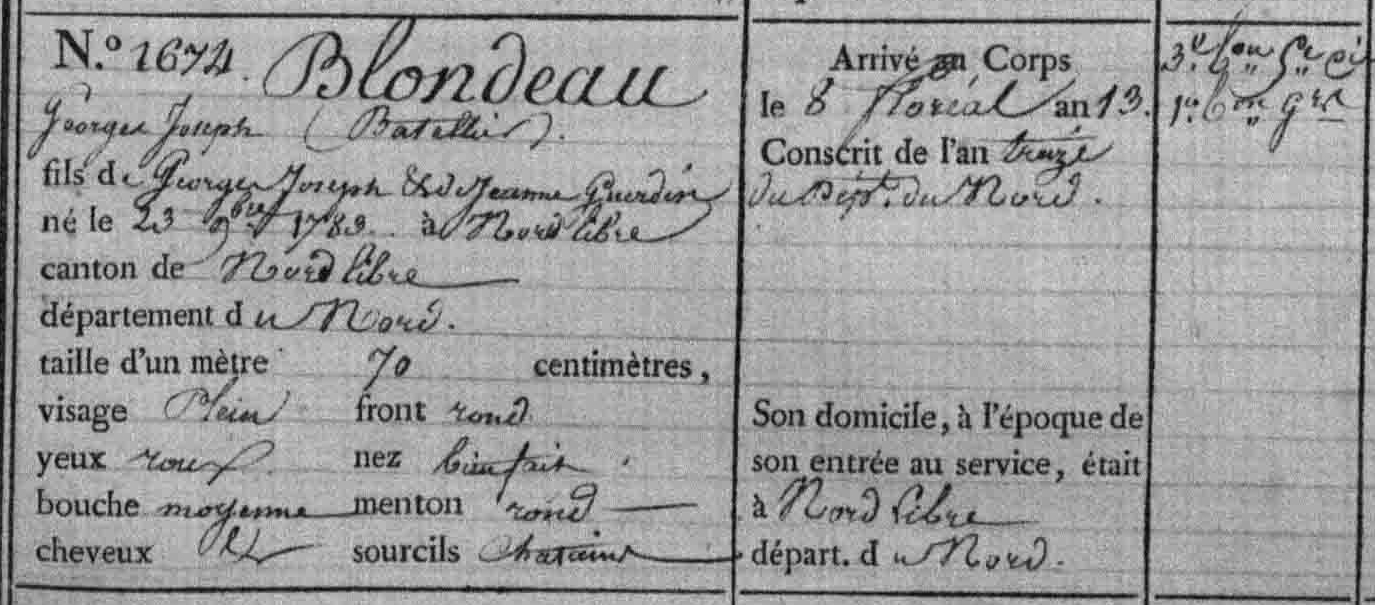 N.o 1674. Blondeau
Georges Joseph (Batellier).
fils de Georges Joseph & de Jeanne Guerdin
né le 23 9bre 1783 à Nord libre
canton de Nord libre
département du Nord.
taille d'un mètre 70 centimètres,
visage Plein front rond
yeux roux nez bienfait
bouche moyenne menton rond
cheveux & sourcils Chatains
Arrivé au Corps
le 8 floréal an 13.
Conscrit de l'an treize
du Dépt. du Nord.
Son domicile, à l'époque de
son entrée au service, était
à Nord Libre
départ. du Nord.
3e bon
1er bon